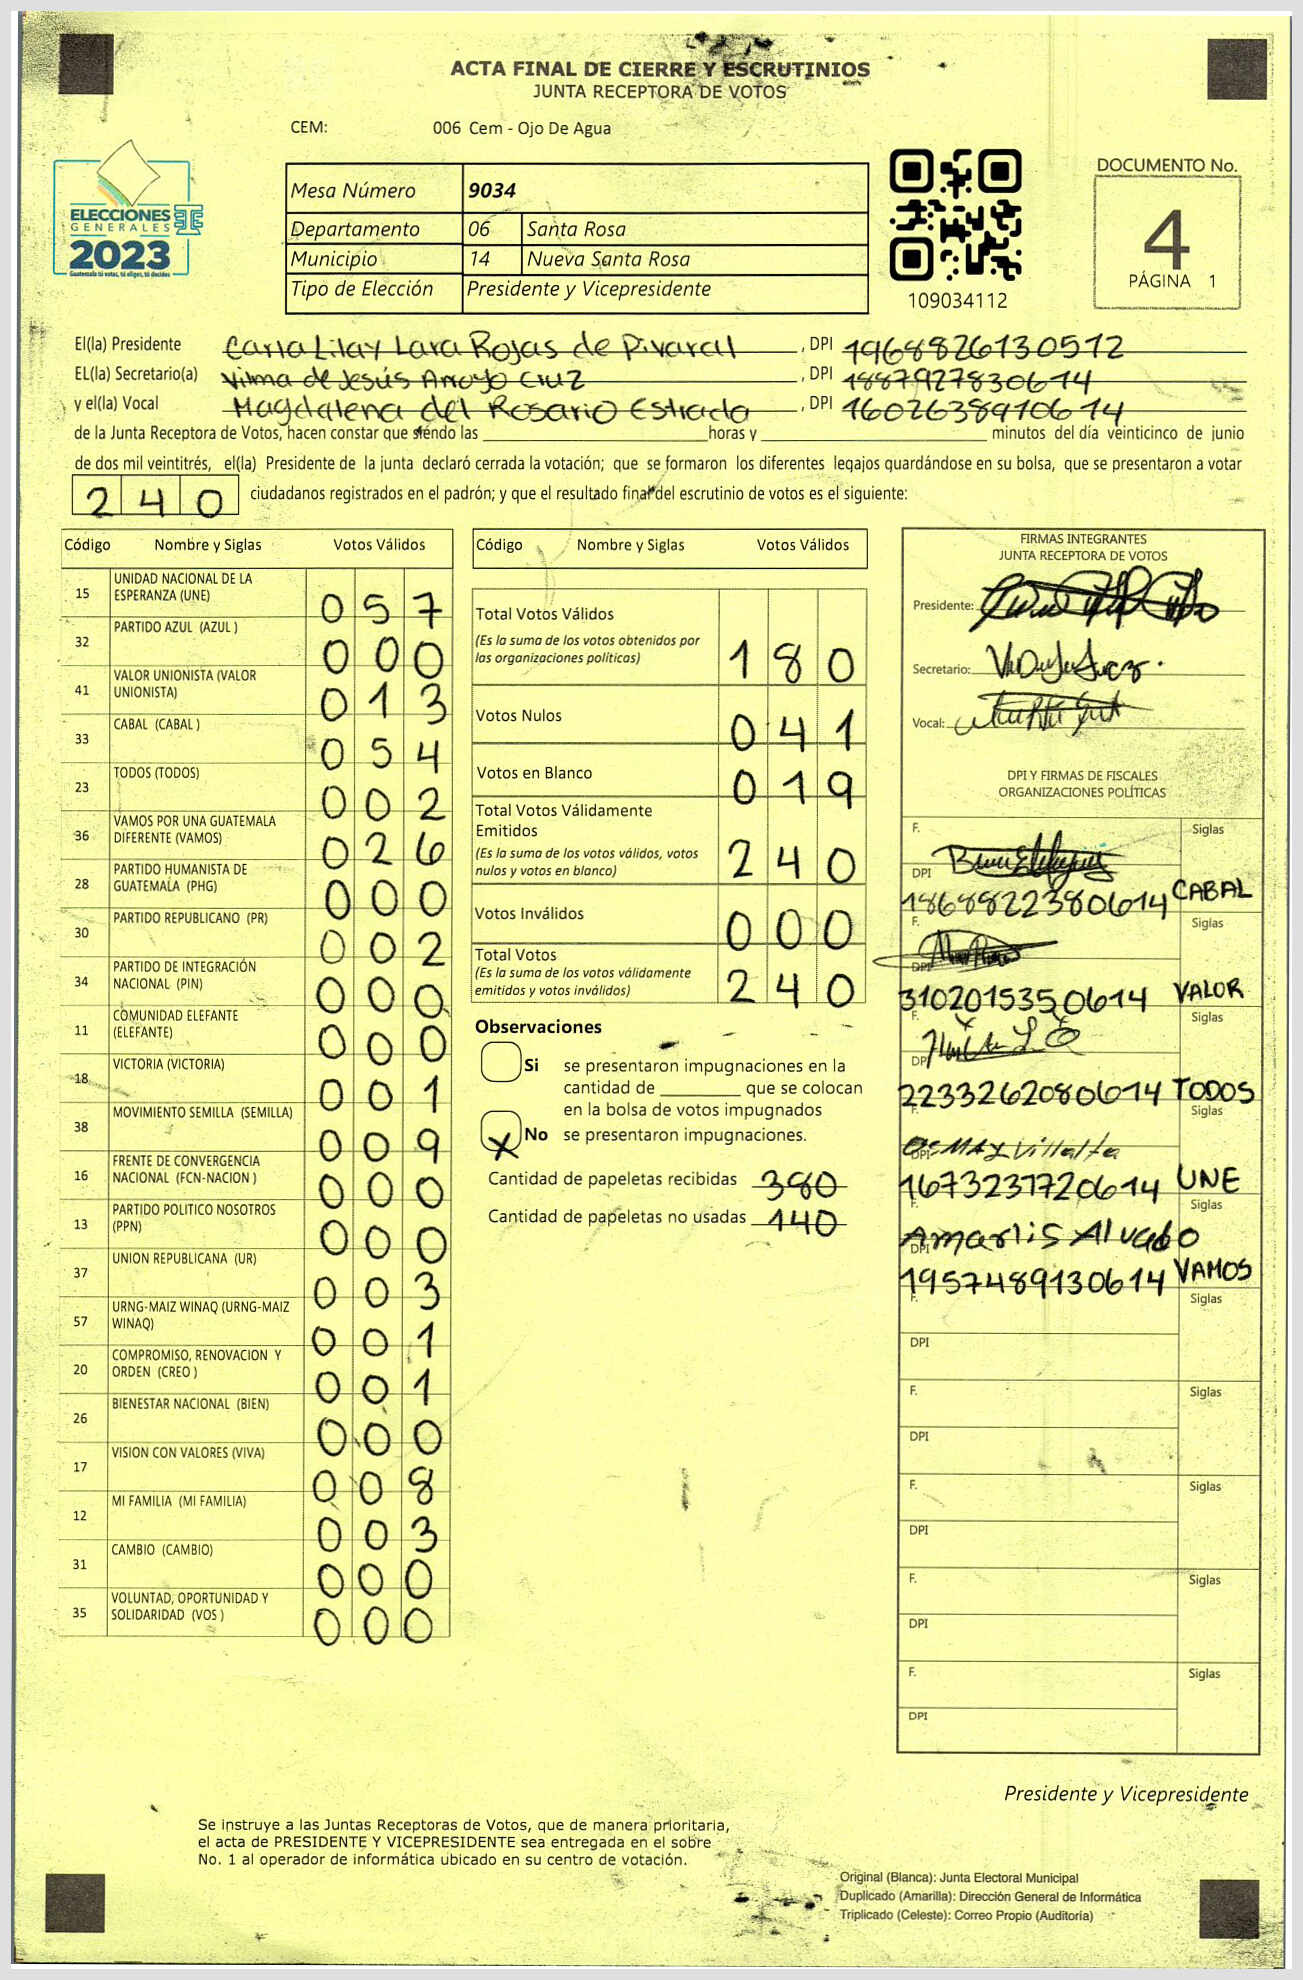 ACTA FINAL DE CIERRE Y ESCRUTINIOS
JUNTA RECEPTORA DE VOTOS
CEM: 006 Cem - Ojo De Agua
ELECCIONES
GENERALES
2023
Guatemala tú votas, tú eliges, tú decides
Mesa Número 9034
Departamento 06 Santa Rosa
Municipio 14 Nueva Santa Rosa
Tipo de Elección Presidente y Vicepresidente
109034112
DOCUMENTO No.
4
PÁGINA 1
El(la) Presidente Carla Lilay Lara Rojas de Pivaral, DPI 1968826130512
EL(la) Secretario(a) Vilma de Jesús Arroyo Cruz, DPI 1887927830614
y el(la) Vocal Magdalena del Rosario Estrada, DPI 1602638910614
de la Junta Receptora de Votos, hacen constar que siendo las ____ horas y ____ minutos del día veinticinco de junio
de dos mil veintitrés, el(la) Presidente de la junta declaró cerrada la votación; que se formaron los diferentes legajos guardándose en su bolsa, que se presentaron a votar
240 ciudadanos registrados en el padrón; y que el resultado final del escrutinio de votos es el siguiente:
Código Nombre y Siglas Votos Válidos
15 UNIDAD NACIONAL DE LA ESPERANZA (UNE) 057
32 PARTIDO AZUL (AZUL ) 000
41 VALOR UNIONISTA (VALOR UNIONISTA) 013
33 CABAL (CABAL ) 054
23 TODOS (TODOS) 002
36 VAMOS POR UNA GUATEMALA DIFERENTE (VAMOS) 026
28 PARTIDO HUMANISTA DE GUATEMALA (PHG) 000
30 PARTIDO REPUBLICANO (PR) 002
34 PARTIDO DE INTEGRACIÓN NACIONAL (PIN) 000
11 COMUNIDAD ELEFANTE (ELEFANTE) 000
18 VICTORIA (VICTORIA) 001
38 MOVIMIENTO SEMILLA (SEMILLA) 009
16 FRENTE DE CONVERGENCIA NACIONAL (FCN-NACION ) 000
13 PARTIDO POLITICO NOSOTROS (PPN) 000
37 UNION REPUBLICANA (UR) 003
57 URNG-MAIZ WINAQ (URNG-MAIZ WINAQ) 001
20 COMPROMISO, RENOVACION Y ORDEN (CREO ) 001
26 BIENESTAR NACIONAL (BIEN) 000
17 VISION CON VALORES (VIVA) 008
12 MI FAMILIA (MI FAMILIA) 003
31 CAMBIO (CAMBIO) 000
35 VOLUNTAD, OPORTUNIDAD Y SOLIDARIDAD (VOS ) 000
Código Nombre y Siglas Votos Válidos
Total Votos Válidos
(Es la suma de los votos obtenidos por
las organizaciones políticas) 180
Votos Nulos 041
Votos en Blanco 019
Total Votos Válidamente
Emitidos
(Es la suma de los votos válidos, votos
nulos y votos en blanco) 240
Votos Inválidos 000
Total Votos
(Es la suma de los votos válidamente
emitidos y votos inválidos) 240
Observaciones
Si se presentaron impugnaciones en la
cantidad de ____ que se colocan
en la bolsa de votos impugnados
X No se presentaron impugnaciones.
Cantidad de papeletas recibidas 380
Cantidad de papeletas no usadas 140
FIRMAS INTEGRANTES
JUNTA RECEPTORA DE VOTOS
Presidente:
Secretario:
Vocal:
DPI Y FIRMAS DE FISCALES
ORGANIZACIONES POLÍTICAS
F. Siglas
DPI 1868822380614 CABAL
F. Siglas
DPI 3102015350614 VALOR
F. Siglas
DPI 2233262080614 TODOS
F. Villalta Siglas
DPI 1673231720614 UNE
F. Amarlis Alvado Siglas
DPI 1957489130614 VAMOS
F. Siglas
DPI
F. Siglas
DPI
F. Siglas
DPI
F. Siglas
DPI
F. Siglas
DPI
Presidente y Vicepresidente
Se instruye a las Juntas Receptoras de Votos, que de manera prioritaria,
el acta de PRESIDENTE Y VICEPRESIDENTE sea entregada en el sobre
No. 1 al operador de informática ubicado en su centro de votación.
Original (Blanca): Junta Electoral Municipal
Duplicado (Amarilla): Dirección General de Informática
Triplicado (Celeste): Correo Propio (Auditoría)